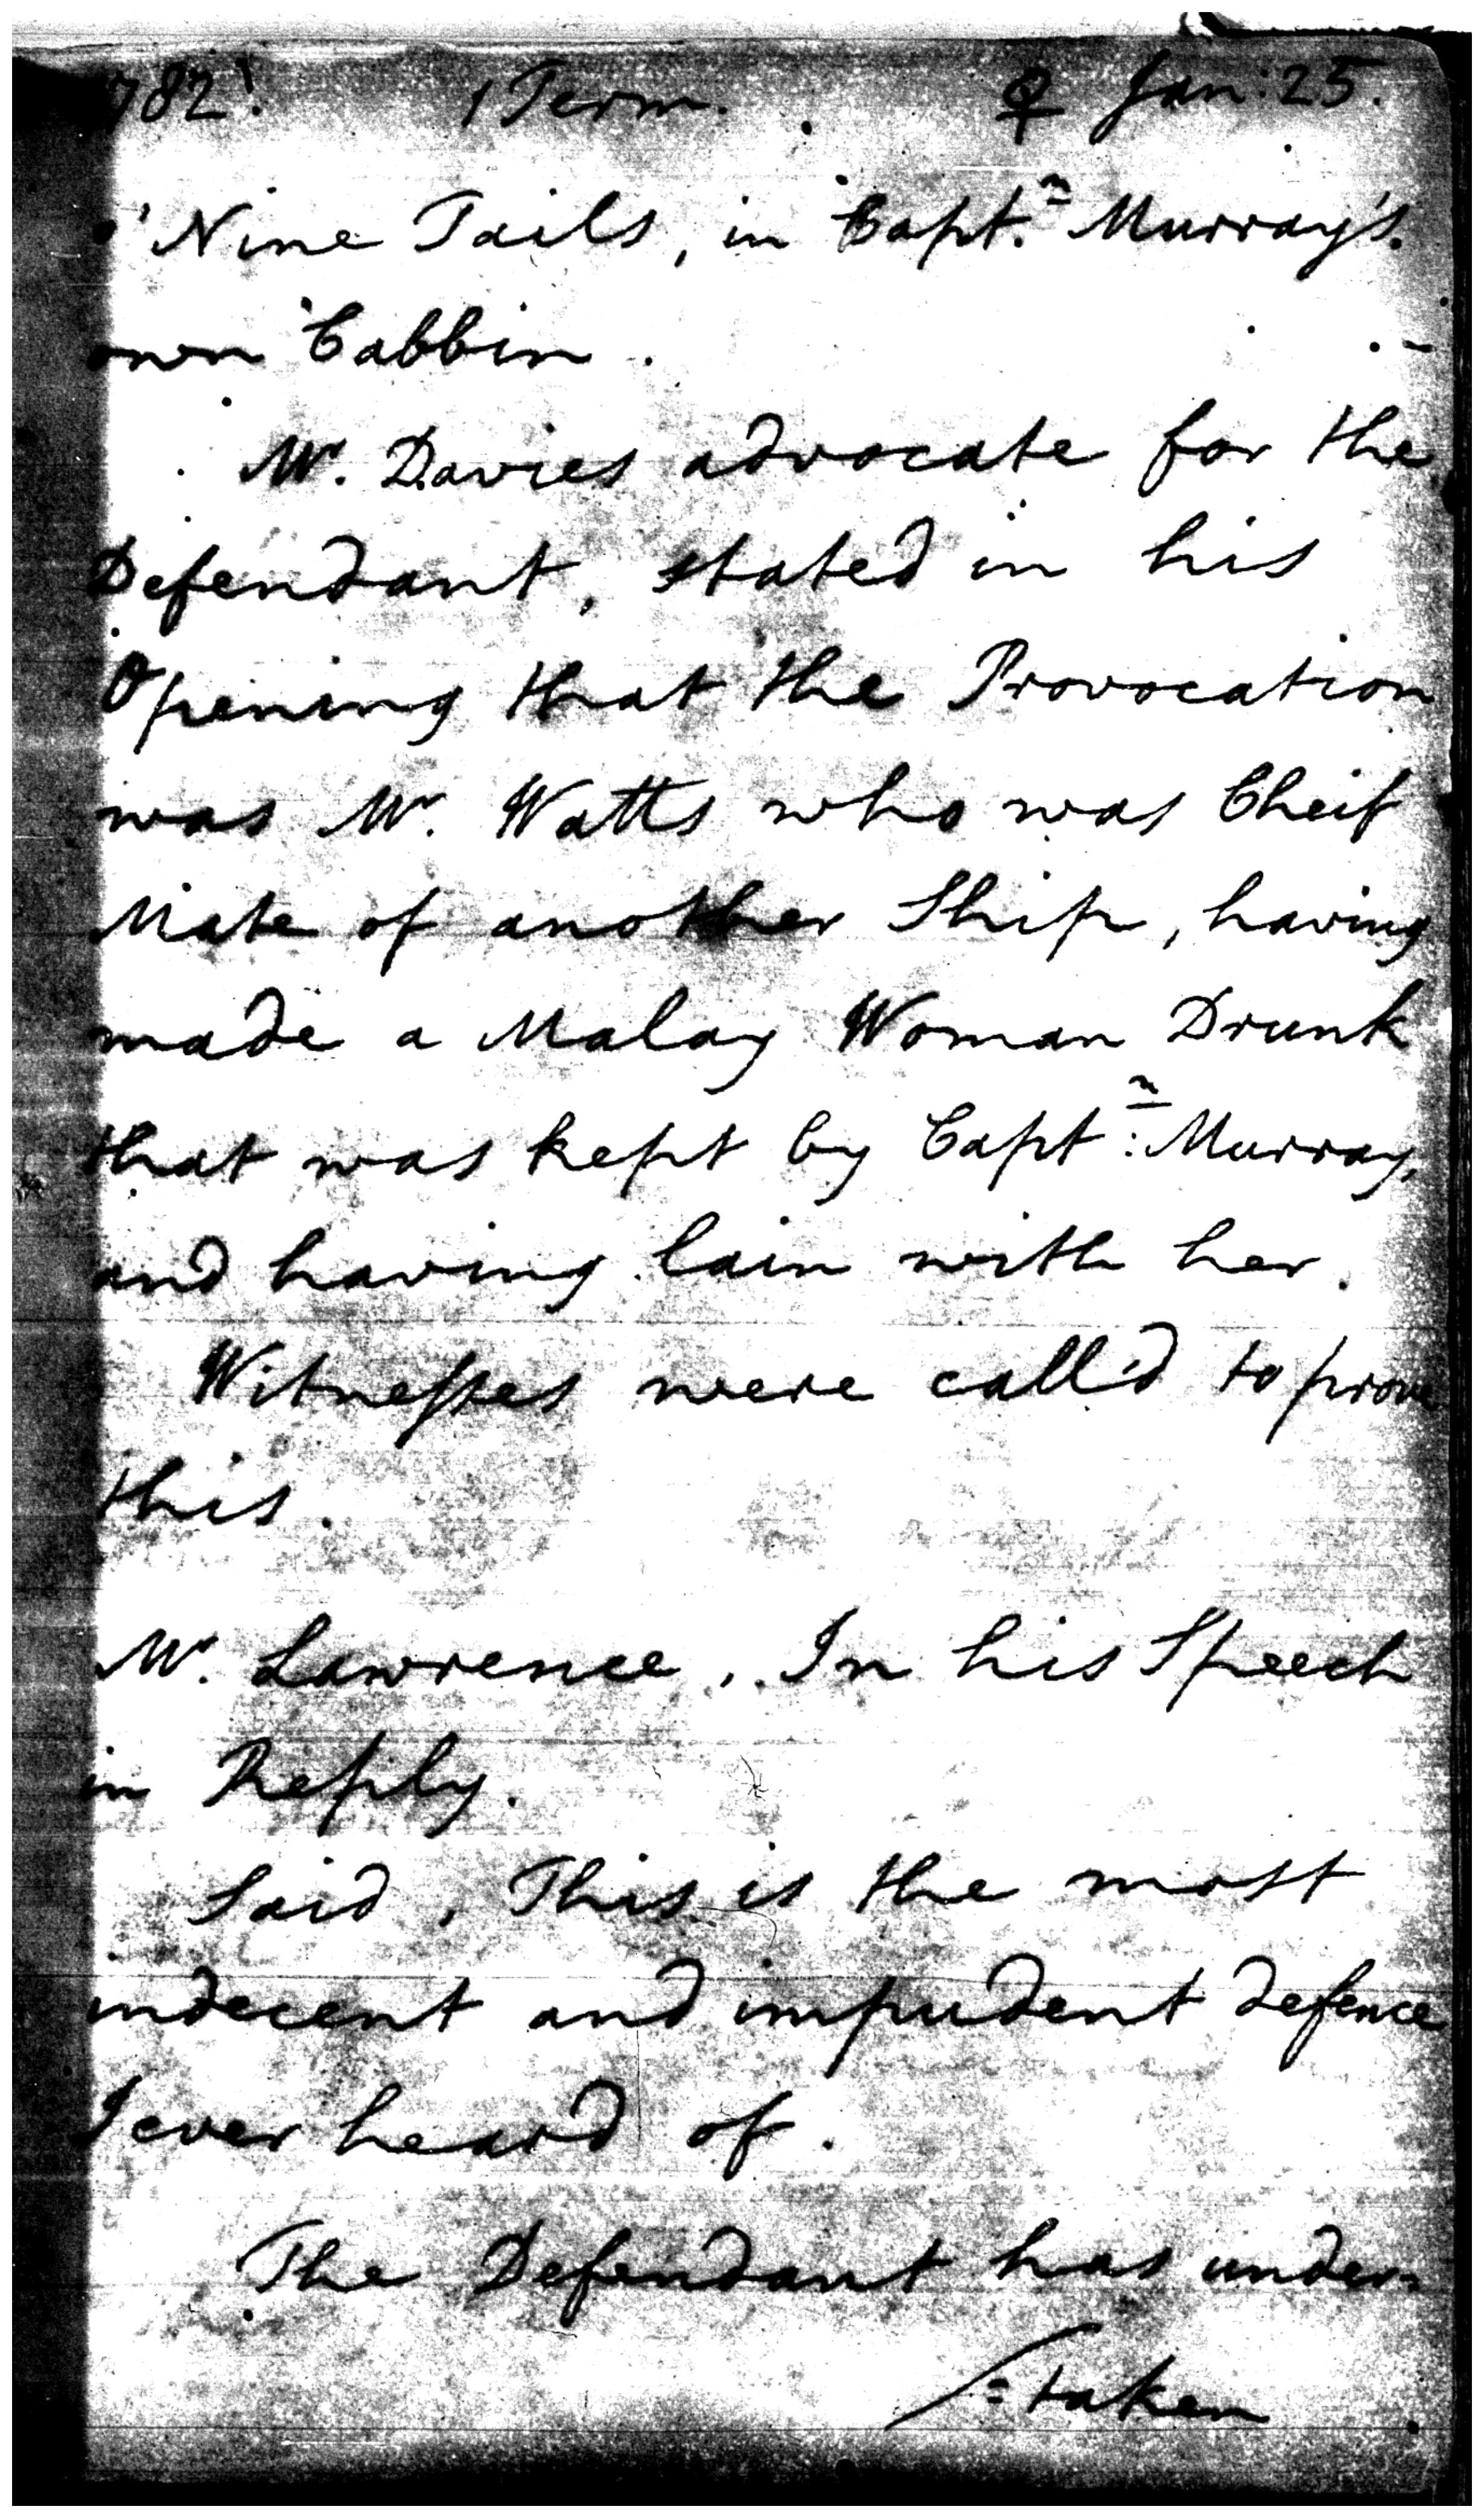 1782. 1 Term. ♀ Jan: 25.
o' Nine Tails, in Capt.ⁿ Murray's.
own Cabbin.
Mr. Davies advocate for the
Defendant, stated in his
Opening that the Provocation
was Mr. Watts who was Cheif
Mate of another Ship, having
made a Malay Woman Drunk
that was kept by Capt:ⁿ Murray,
and having lain with her.
Witnesses were call'd to prove
this.
Mr. Lawrence, In his Speech
in Reply.
Said, This is the most
indecent and impudent defence
I ever heard of.
The Defendant has under=
=taken